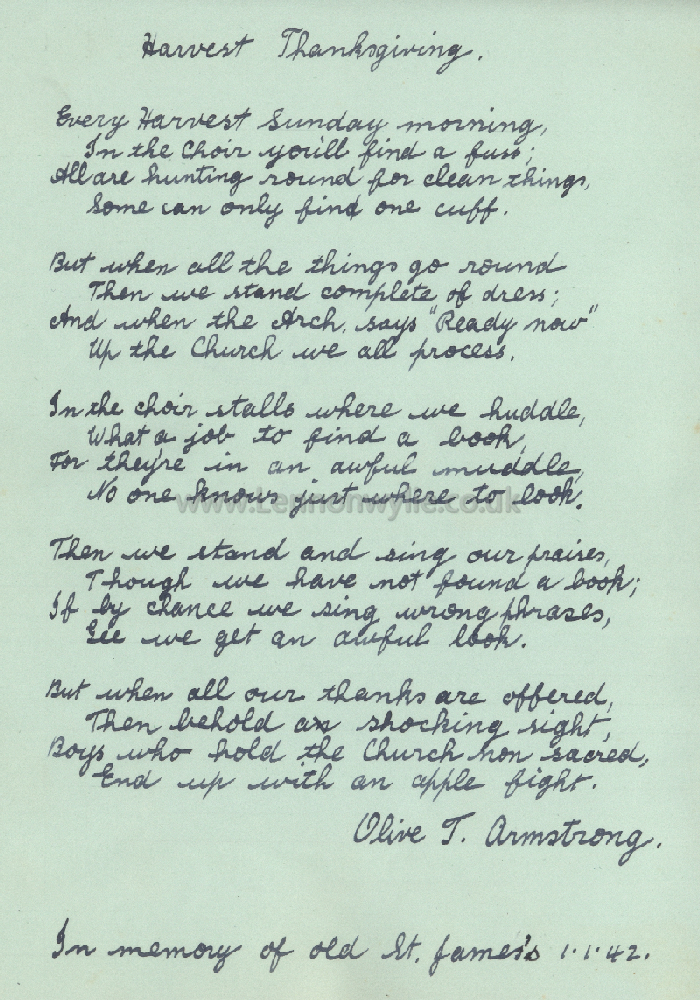 Harvest Thanksgiving.
Every Harvest Sunday morning,
In the Choir you'll find a fuss;
All are hunting round for clean things,
Some can only find one cuff.
But when all the things go round
Then we stand complete of dress;
And when the Arch. says "Ready now"
Up the Church we all process.
In the choir stalls where we huddle,
What a job to find a book,
For they're in an awful muddle,
No one knows just where to look.
www.Lennonwylie.co.uk
Then we stand and sing our praises,
Though we have not found a book;
If by chance we sing wrong phrases,
Gee we get an awful look.
But when all our thanks are offered,
Then behold a shocking sight,
Boys who hold the Church non sacred,
End up with an apple fight.
Olive T. Armstrong.
In memory of old St. James's 1.1.42.